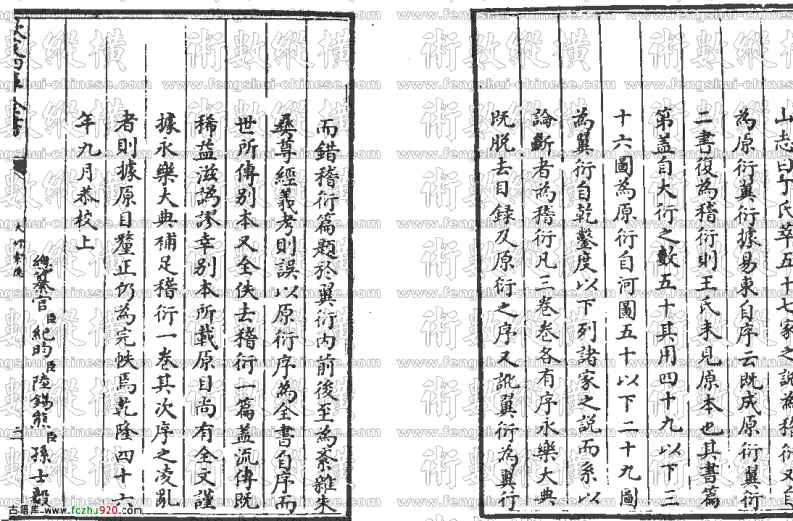 山志曰丁氏萃五十七家之說為稽衍又自
為原衍翼衍據易東自序云既成原衍翼衍
二書復為稽衍則王氏未見原本也其書篇
第蓋自大衍之數五十其用四十九以下三
十六圖為原衍自河圖五十以下二十九圖
為翼衍自乾鑿度以下列諸家之說而系以
論斷者為稽衍凡三卷卷各有序永樂大典
既脫去目録及原衍之序又訛翼衍為翼行
而錯稽衍篇題於翼衍内前後至為紊雜朱
彝尊經義考則誤以原衍序為全書自序而
世所傳别本又全佚去稽衍一篇蓋流傳既
稀益滋譌謬幸别本所載原目尚有全文謹
據永樂大典補足稽衍一卷其次序之凌亂
者則據原目釐正仍為完帙焉乾隆四十六
年九月恭校上
總纂官臣紀昀臣陸錫熊臣孫士毅
欽定四庫全書
大衍索隱
二
術數縱橫
www.fengshui-chinese.com
古籍库-www.fczhu920.com